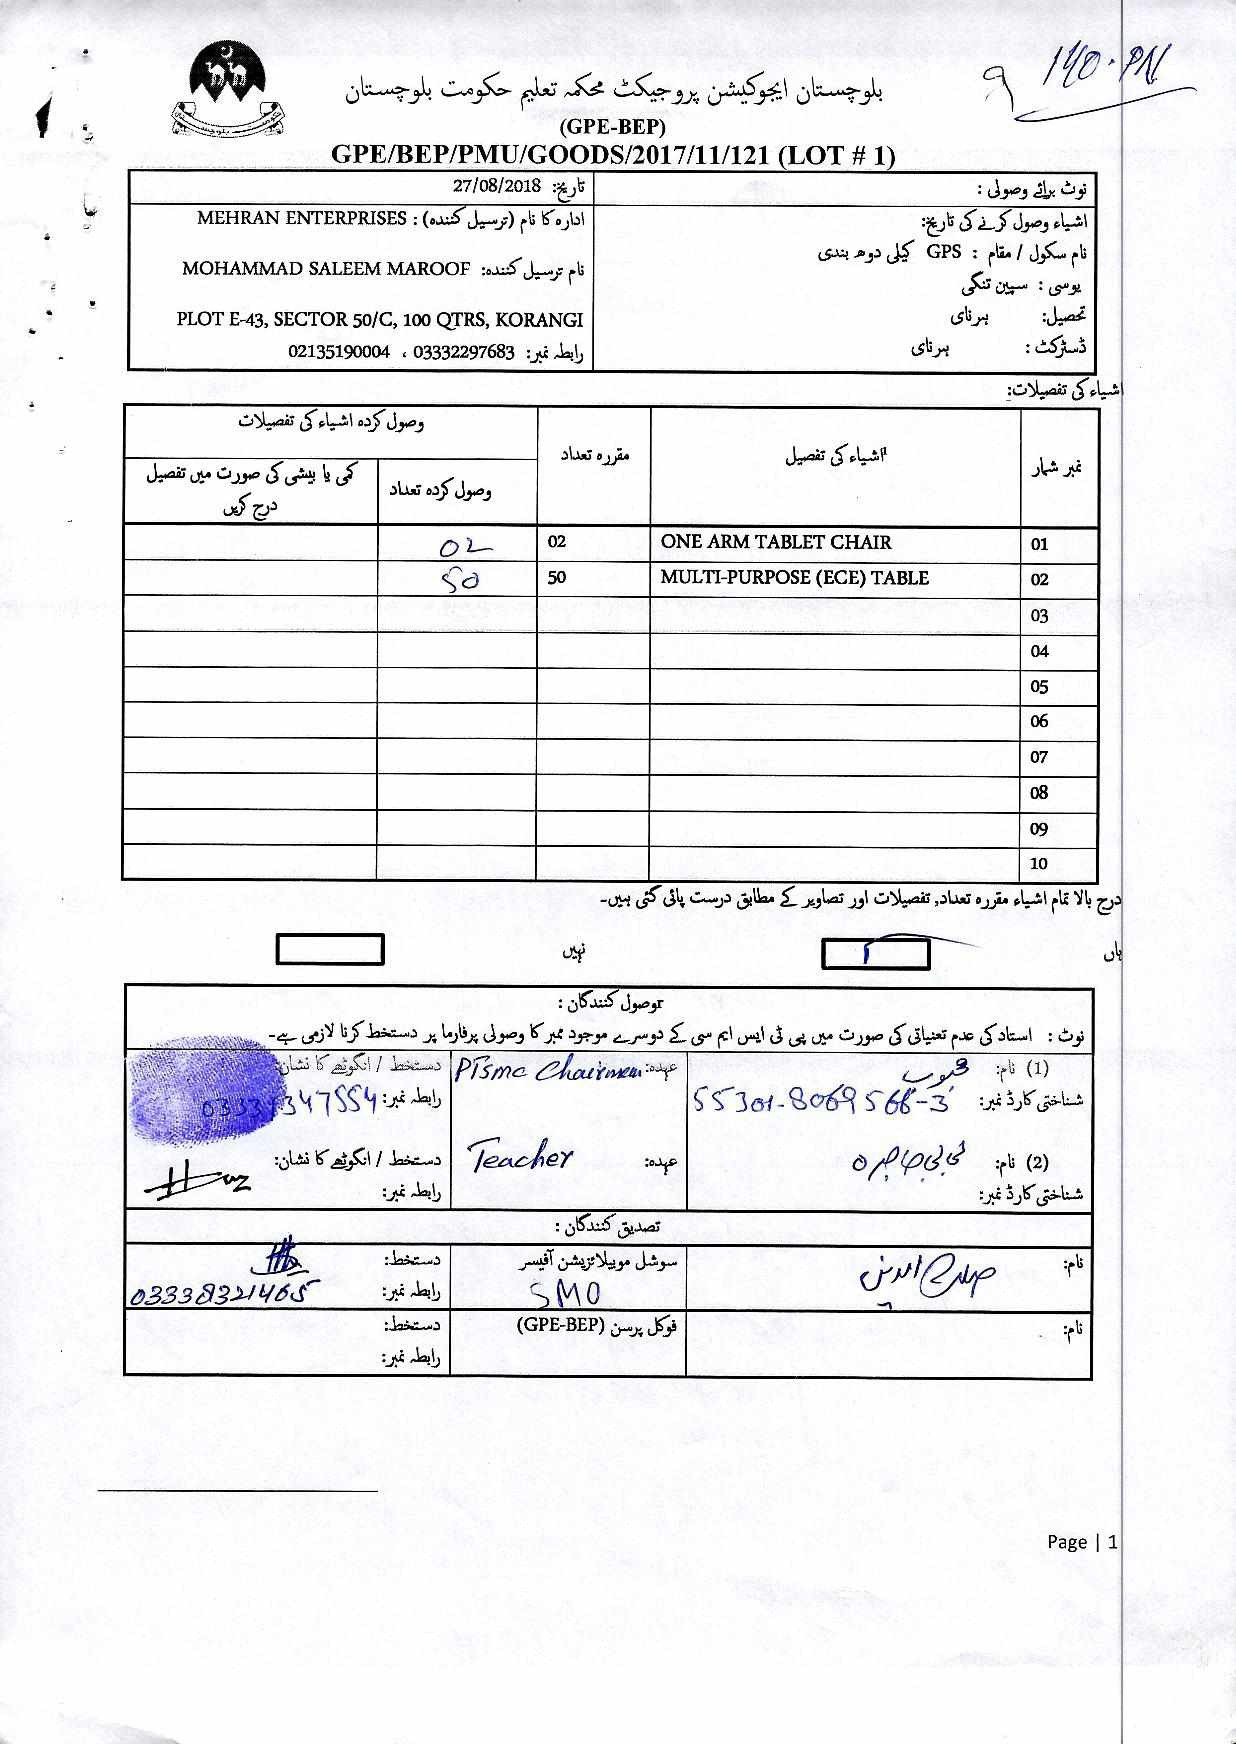 140-PN
بلوچستان ایجوکیشن پروجیکٹ محکمہ تعلیم حکومت بلوچستان
(GPE-BEP)
GPE/BEP/PMU/GOODS/2017/11/121 (LOT # 1)
نوٹ برائے وصولی :
تاریخ: 27/08/2018
اشیاء وصول کرنے کی تاریخ:
ادارہ کا نام (ترسیل کنندہ) : MEHRAN ENTERPRISES
نام سکول / مقام : GPS کیلی دوھ بندی
نام ترسیل کنندہ: MOHAMMAD SALEEM MAROOF
یوسی : سپین تنگی
تحصیل: ہرنای
PLOT E-43, SECTOR 50/C, 100 QTRS, KORANGI
ڈسٹرکٹ : ہرنای
رابطہ نمبر: 03332297683 ، 02135190004
اشیاء کی تفصیلات:
نمبر شمار اشیاء کی تفصیل مقررہ تعداد وصول کردہ اشیاء کی تفصیلات
وصول کردہ تعداد کمی یا بیشی کی صورت میں تفصیل درج کریں
01 ONE ARM TABLET CHAIR 02 02
02 MULTI-PURPOSE (ECE) TABLE 50 50
03
04
05
06
07
08
09
10
درج بالا تمام اشیاء مقررہ تعداد, تفصیلات اور تصاویر کے مطابق درست پائی گئی ہیں۔
ہاں نہیں
وصول کنندگان :
نوٹ : استاد کی عدم تعیناتی کی صورت میں پی ٹی ایس ایم سی کے دوسرے موجود ممبر کا وصولی پرفارما پر دستخط کرنا لازمی ہے۔
(1) نام: عہدہ: PTSMC Chairmen دستخط / انگوٹھے کا نشان:
شناختی کارڈ نمبر: 55301-8069566-3 رابطہ نمبر: 03337347554
(2) نام: بی بی عہدہ: Teacher دستخط / انگوٹھے کا نشان:
شناختی کارڈ نمبر: رابطہ نمبر:
تصدیق کنندگان :
نام: صلاح الدین سوشل موبیلائزیشن آفیسر دستخط:
SMO رابطہ نمبر: 03338321465
نام: فوکل پرسن (GPE-BEP) دستخط:
رابطہ نمبر:
Page | 1